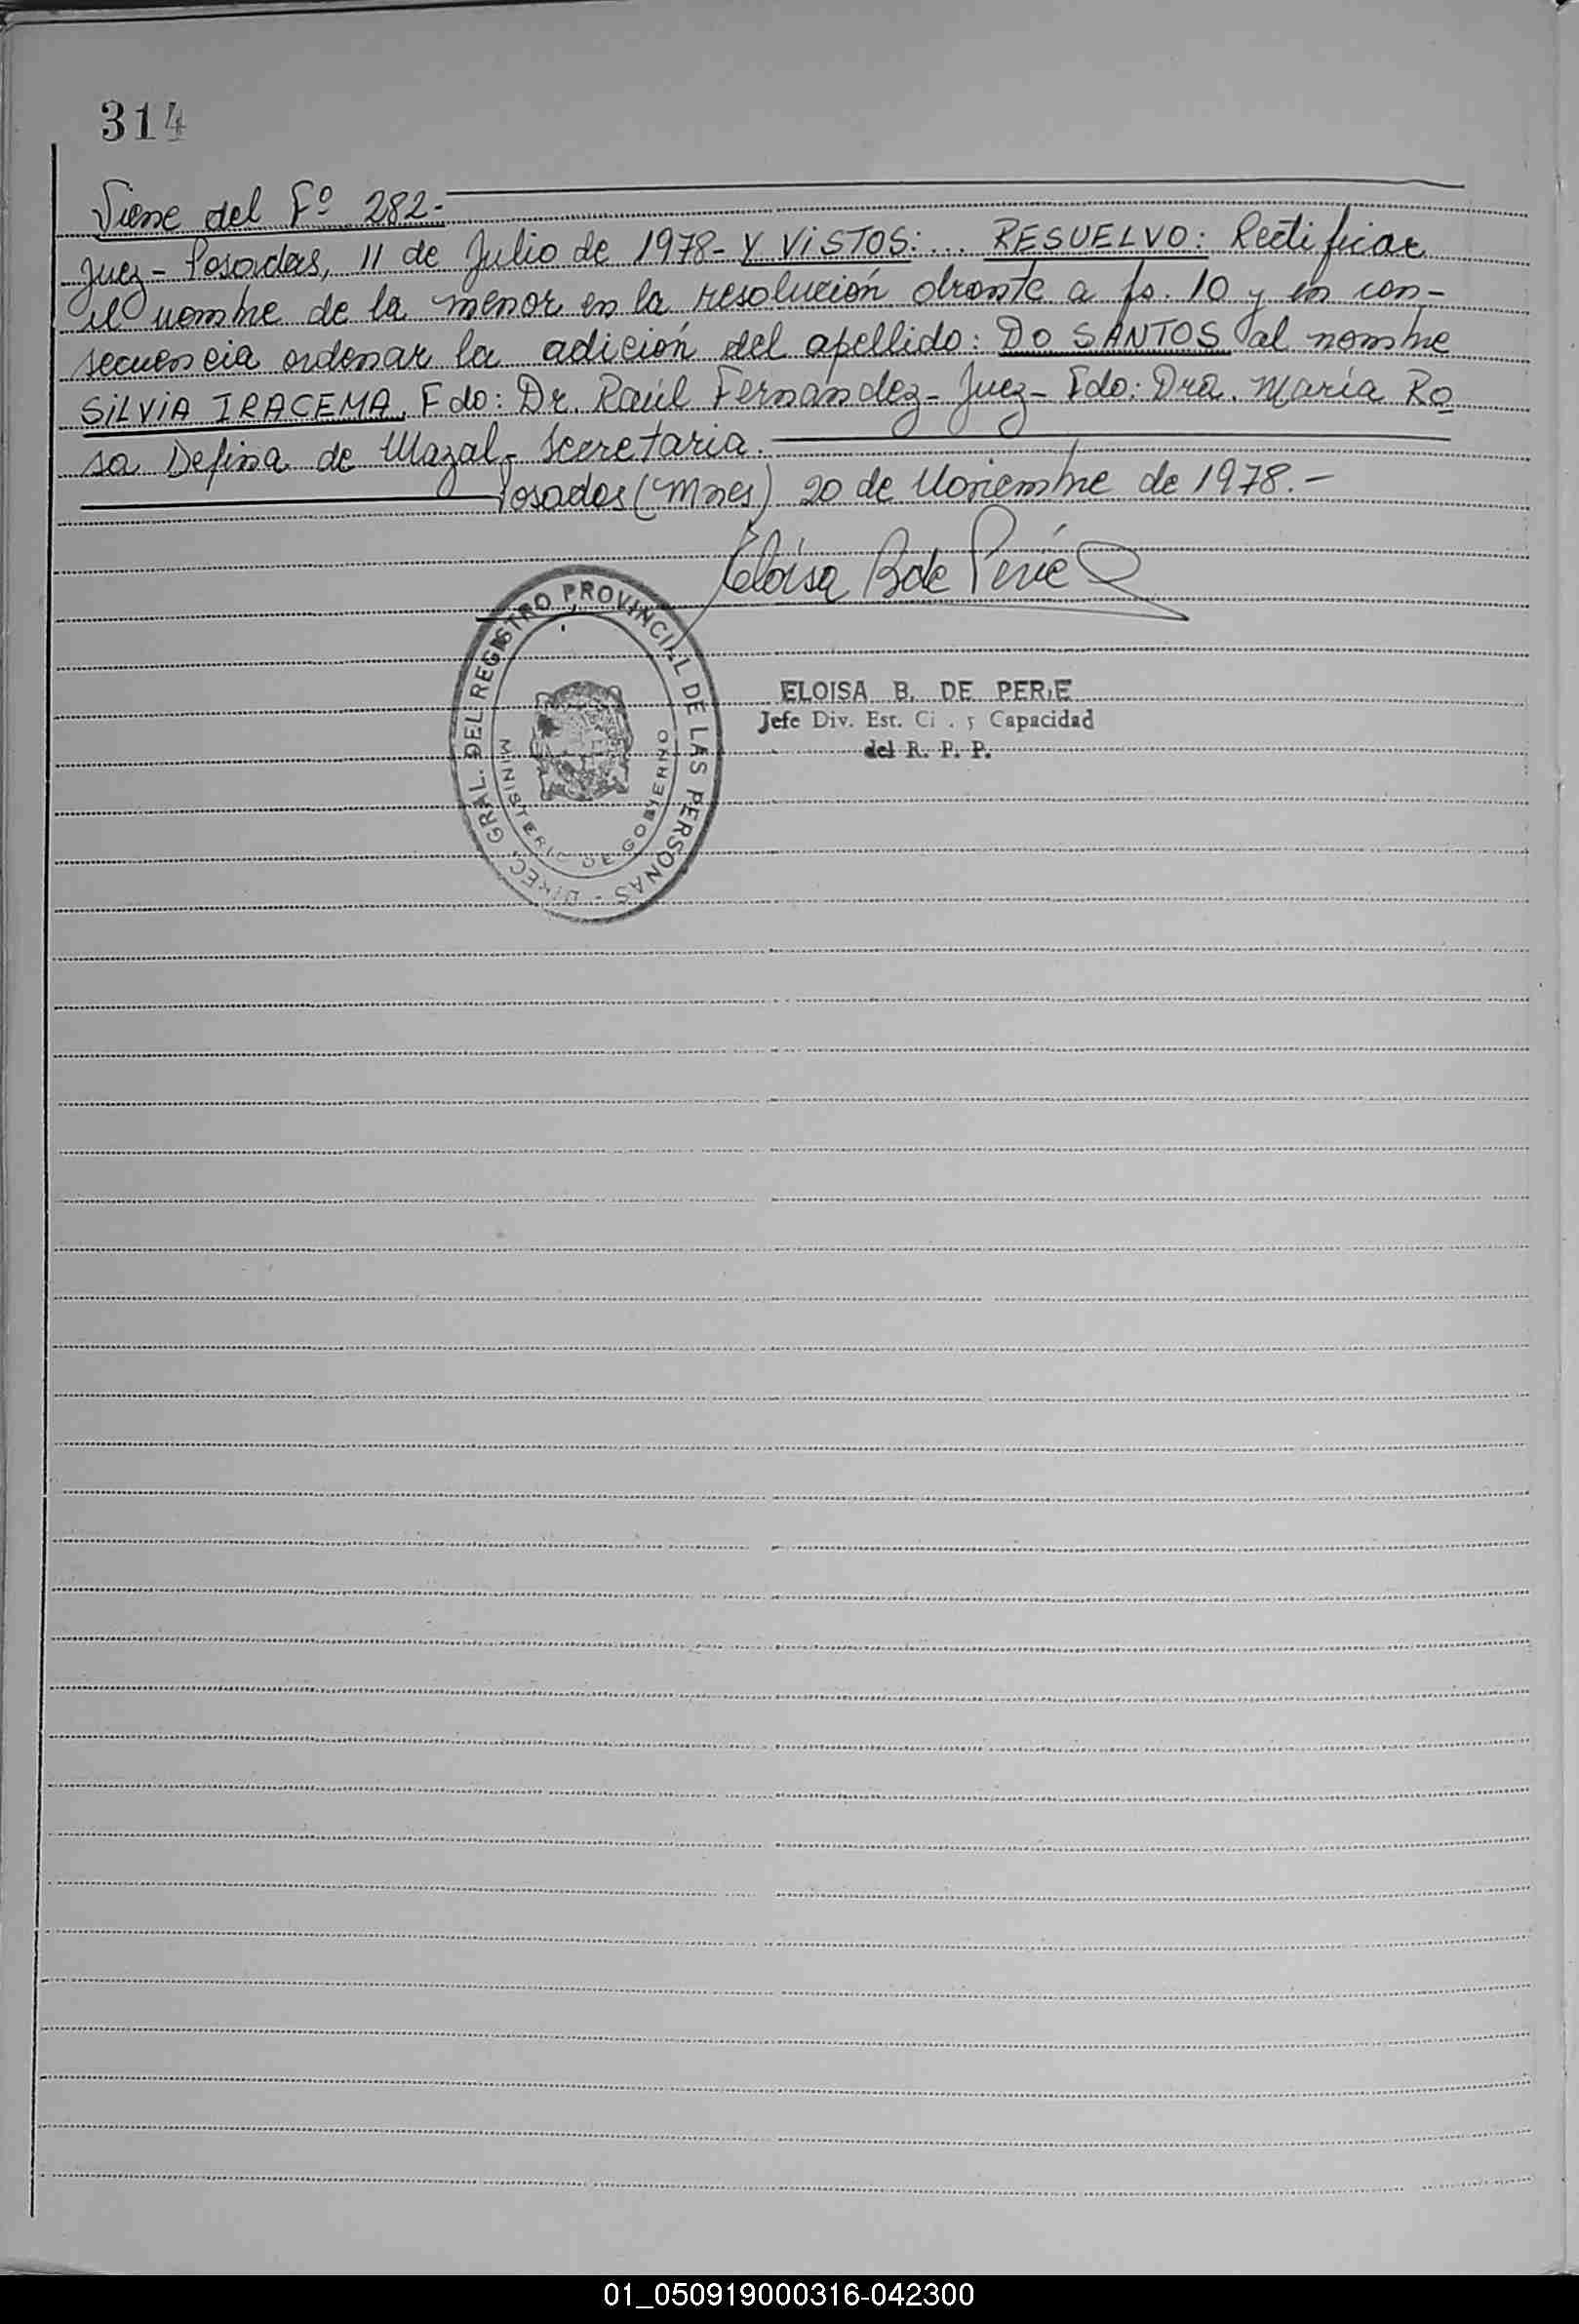 314
Viene del Fº 282.-
Juez - Posadas, 11 de Julio de 1978- Y ViSTOS:... RESUELVO: Rectificar
el nombre de la menor en la resolución obrante a fs. 10 y en con-
secuencia ordenar la adición del apellido: DO SANTOS al nombre
SiLViA IRACEMA. Fdo: Dr. Raúl Fernández- Juez- Fdo: Dra. María Ro
sa Defina de Mazal- Secretaria.
Posadas (Mnes) 20 de Noviembre de 1978.-
Eloisa B de Perié
DIREC. GRAL. DEL REGISTRO PROVINCIAL DE LAS PERSONAS -
MINISTERIO DE GOBIERNO
ELOISA B. DE PERIE
Jefe Div. Est. Ci . y Capacidad
del R. P. P.
01_050919000316-042300